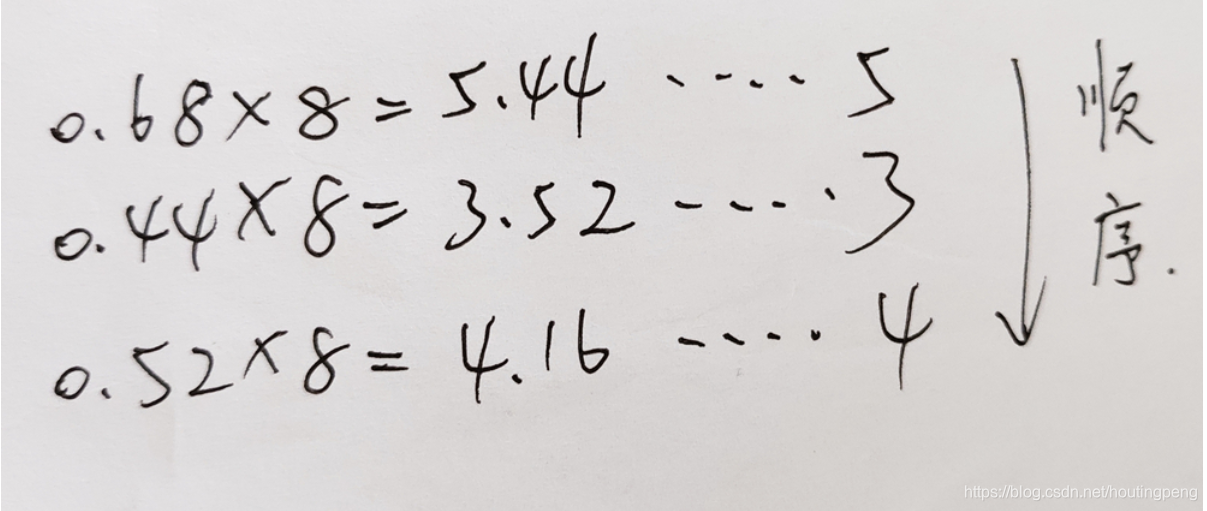 0.68×8=5.44 ····· 5
0.44×8=3.52 ····· 3
0.52×8=4.16 ····· 4
顺序.
https://blog.csdn.net/houtingpeng